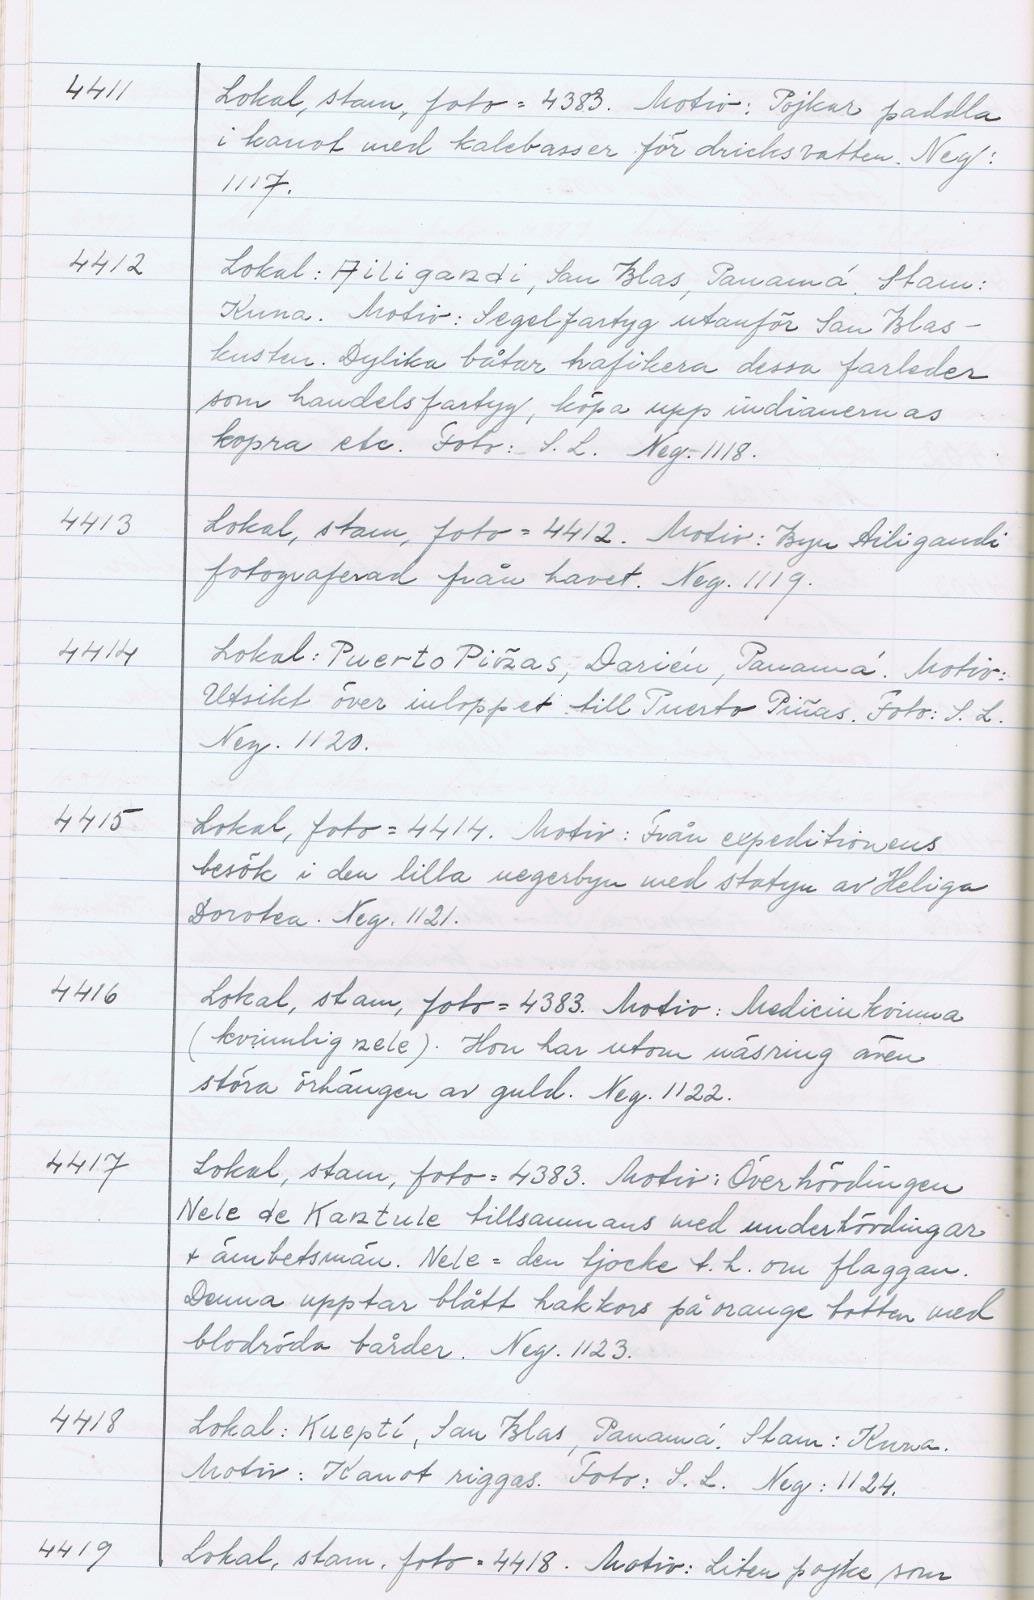 4411 Lokal, stam, foto = 4383. Motiv: Pojkar paddla
i kanot med kalebasser för dricksvatten. Neg:
1117.
4412 Lokal: Ailigandi, San Blas, Panamá. Stam:
Kuna. Motiv: Segelfartyg utanför San Blas-
kusten. Dylika båtar trafikera dessa farleder
som handelsfartyg, köpa upp indianernas
kopra etc. Foto: S. L. Neg. 1118.
4413 Lokal, stam, foto = 4412. Motiv: Byn Ailigandi
fotograferad från havet. Neg. 1119.
4414 Lokal: Puerto Piñas, Darién, Panamá. Motiv:
Utsikt över inloppet till Puerto Piñas. Foto: S. L.
Neg. 1120.
4415 Lokal, foto = 4414. Motiv: Från expeditionens
besök i den lilla negerbyn med statyn av Heliga
Dorotea. Neg. 1121.
4416 Lokal, stam, foto = 4383. Motiv: Medicinkvinna
(kvinnlig nele). Hon har utom näsring även
stora örhängen av guld. Neg. 1122.
4417 Lokal, stam, foto = 4383. Motiv: Överhövdingen
Nele de Kantule tillsammans med underhövdingar
+ ämbetsmän. Nele = den tjocke t. h. om flaggan.
Denna upptar blått hakkors på orange botten med
blodröda bårder. Neg. 1123.
4418 Lokal: Kueptí, San Blas, Panamá. Stam: Kuna.
Motiv: Kanot riggas. Foto: S. L. Neg: 1124.
4419 Lokal, stam, foto = 4418. Motiv: Liten pojke som